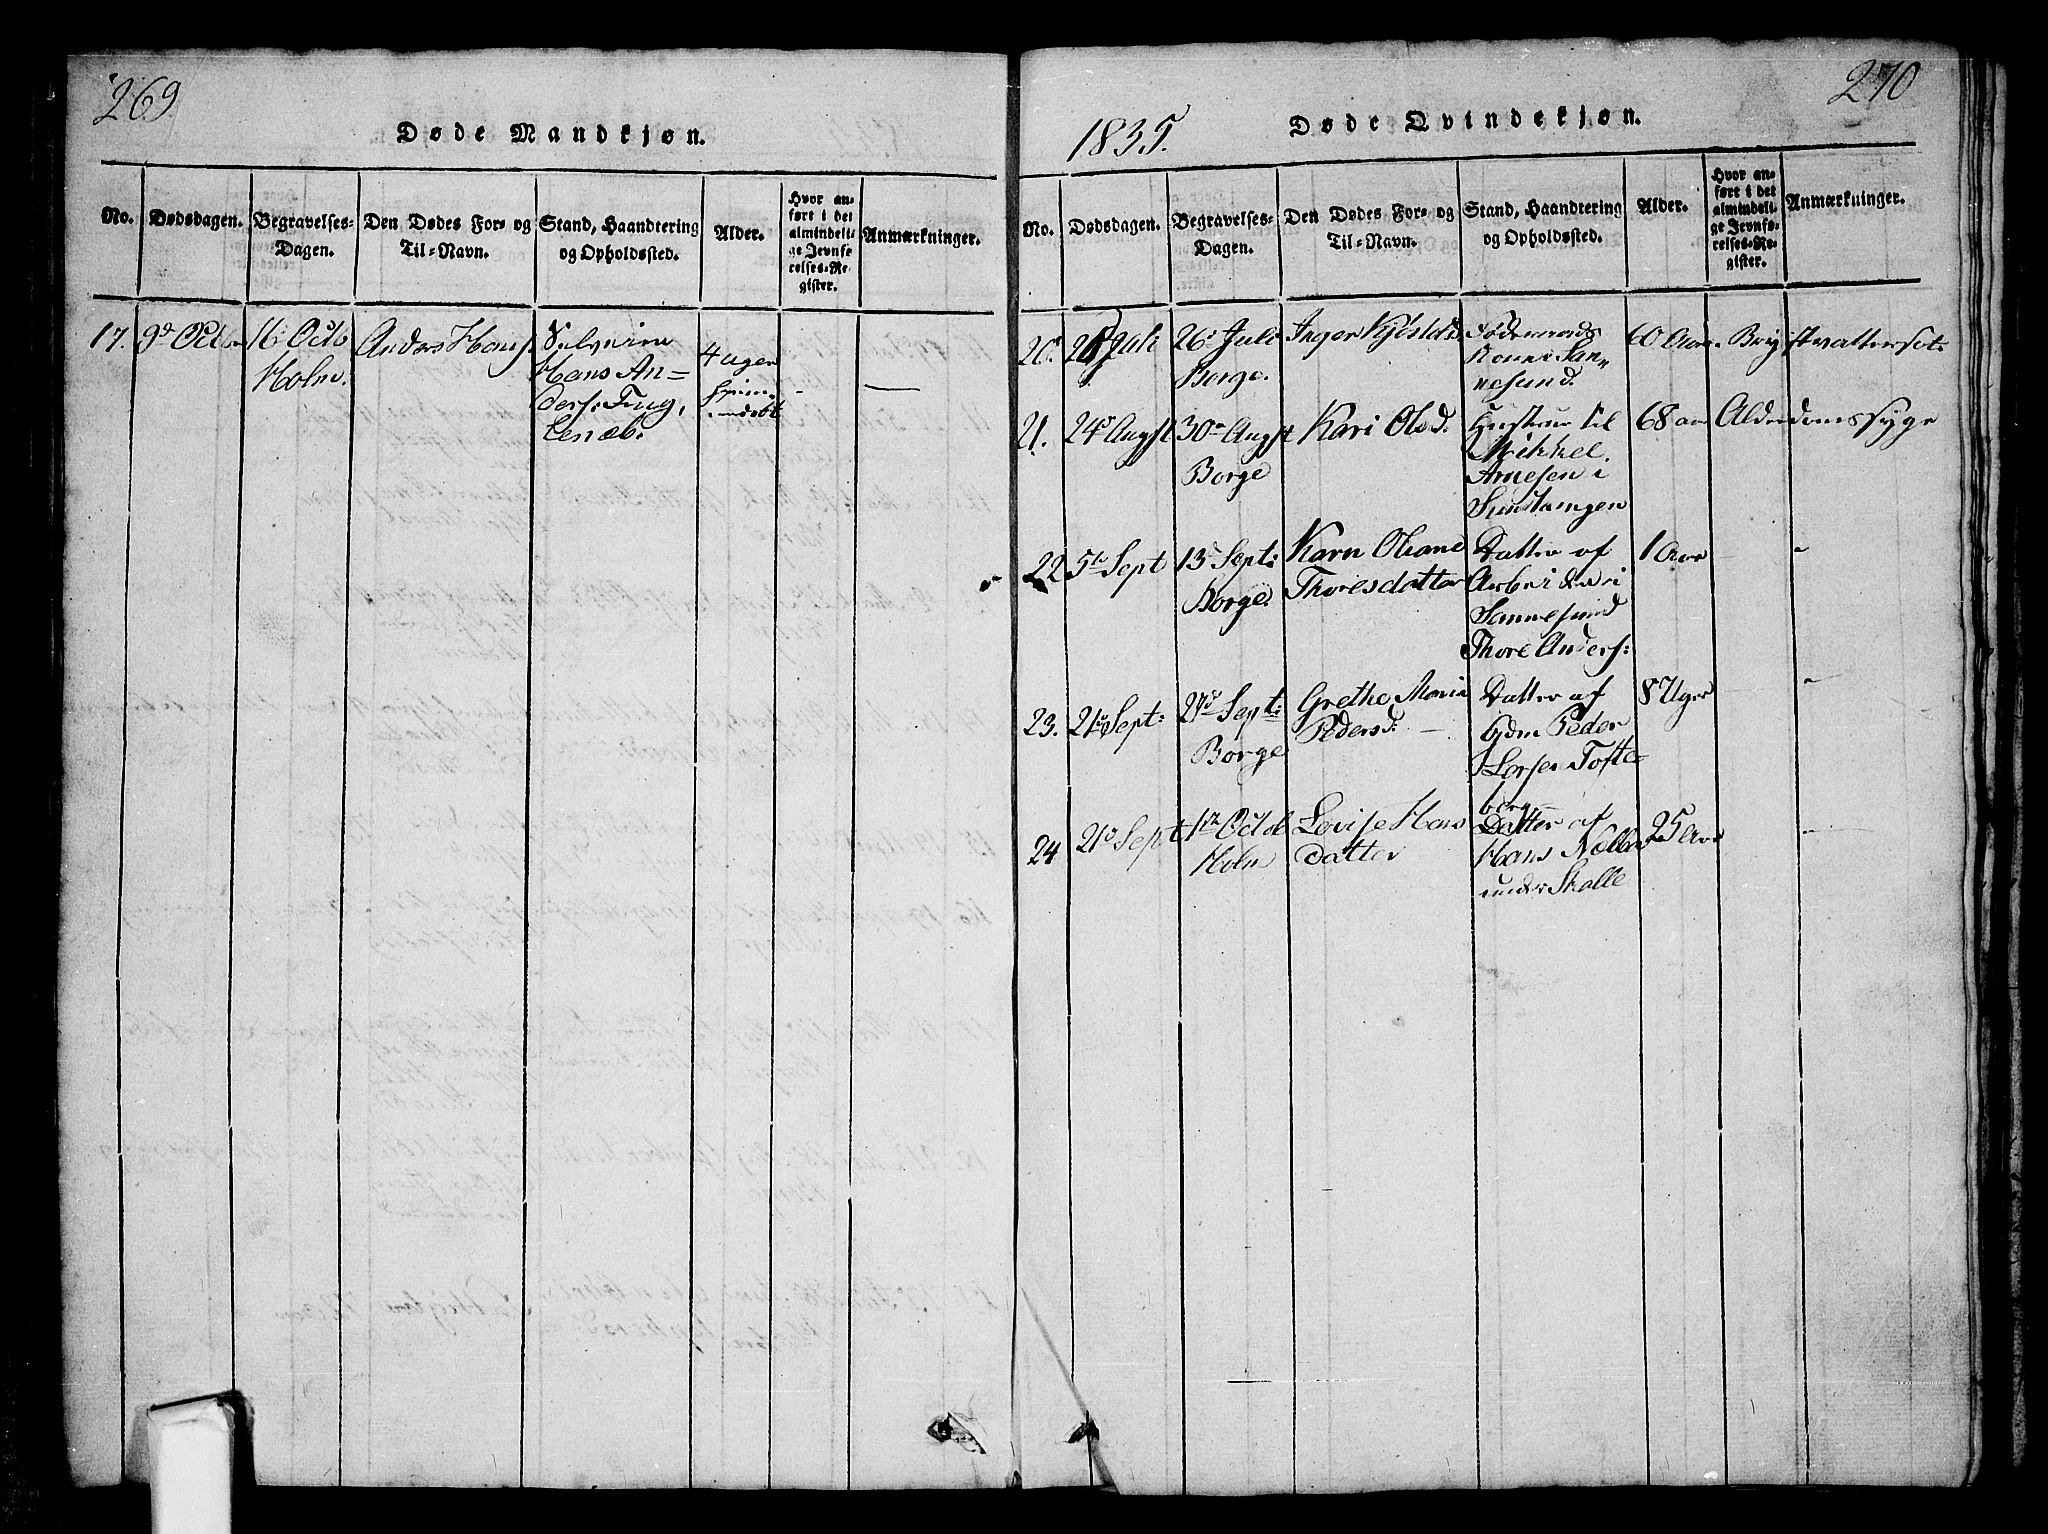 269.
Døde Mandkjøn.
No.
Dødsdagen.
Begravelses-
Dagen.
Den Dødes For- og
Til-Navn.
Stand, Haandtering
og Opholdssted.
Alder.
Hvor an-
ført i det
almindeli-
ge Jevnfø-
relses-Re-
gister.
Anmærkninger.
17.
9d Octo
16 Octo
Holm.
Anders Hanss.
Selveier
Hans An=
ders: Fug,
leneb.
4 uger
hjem̄e
døbt
1835.
Døde Qvindekjøn.
270
No.
Dødsdagen.
Begravelses-
Dagen.
Den Dødes For- og
Til-Navn.
Stand, Haandtering
og Opholdssted.
Alder.
Hvor an-
ført i det
almindeli-
ge Jevnfø-
relses-Re-
gister.
Anmærkninger.
20.
Juli
26. Juli
Borge.
Inger
Kone i San-
nesund.
60 Aar.
Brystvattersot.
21.
24d Augst
30te Augst
Borge
Kari Olsd.
Hustrue til
Mikkel
Arnesen i
68 aar
Alderdomssyge
22
5te Sept
13d Sept:
Borge.
Karn Oleane
Thoresdatter
Datter af
Arbeider i
Sannesund
Thore Anders:
1 Aar
23.
21d Sept:
27d Sept:
Borge
Grethe Maria
Pedersd:
Datter af
Gdm Peder
Larsen Tofte=
berg
8 Uger
24
21d Sept
1te Octob
Holm
Lovise Hans
datter
Datter af
Hans
under Skalle
25 Aar